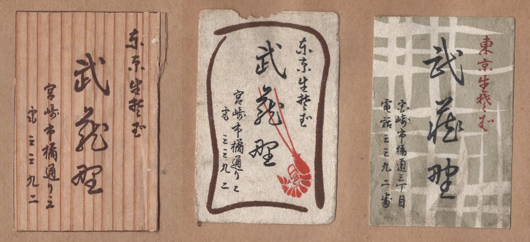 東京生そば
武蔵野
宮崎市橘通り三
電 三三九二
東京生そば
武蔵野
宮崎市橘通り三
電 三三九二
東京生そば
武蔵野
宮崎市橘通三丁目
電話三三九二番